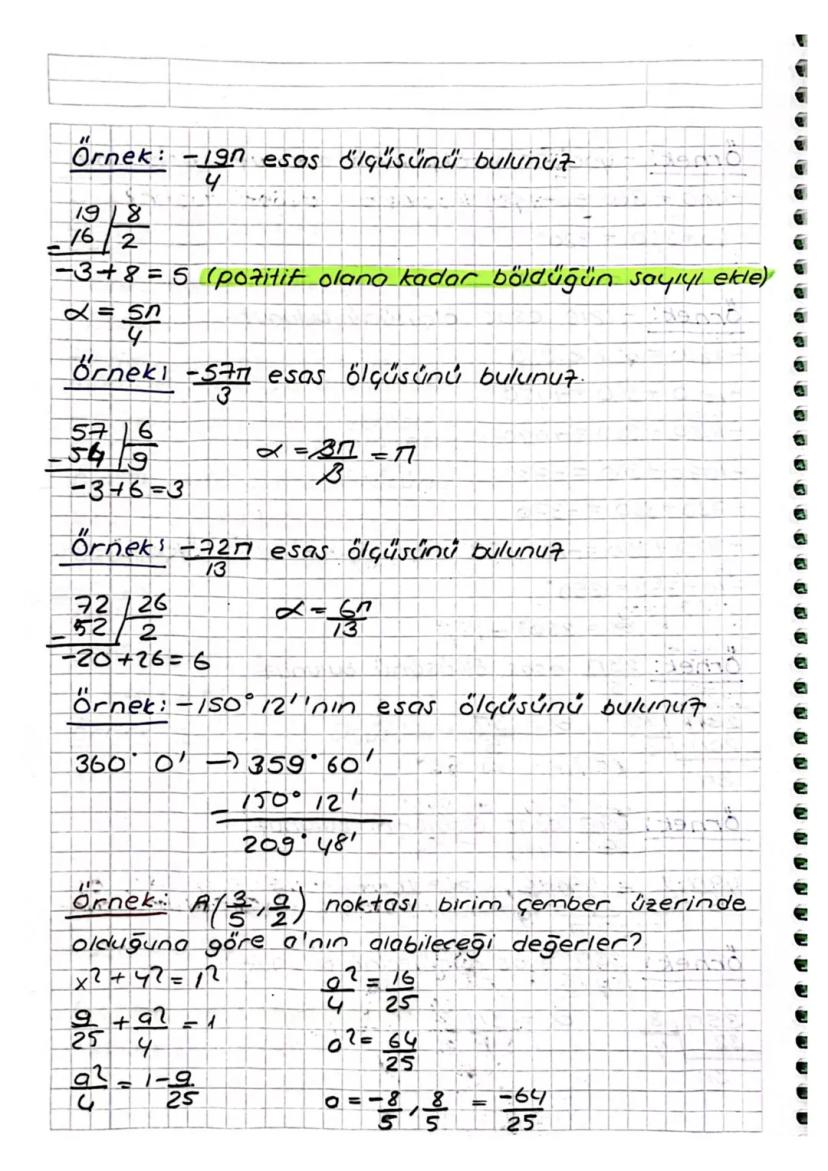 Örnek: -19π/4 esas ölçüsünü bulunuz
19 | 8
- 16 | 2
-3+8 = 5 (pozitif olana kadar böldüğün sayıyı ekle)
α = 5π/4
Örnek: -57π/3 esas ölçüsünü bulunuz.
57 | 6
- 54 | 9
-3+6=3
α = 3π/3 = π
Örnek: -72π/13 esas ölçüsünü bulunuz
72 | 26
- 52 | 2
-20+26= 6
α = 6π/13
Örnek: -150° 12''nın esas ölçüsünü bulunuz
360° 0' → 359° 60'
- 150° 12'
209° 48'
Örnek: A(3/5, a/2) noktası birim çember üzerinde
olduğuna göre a'nın alabileceği değerler?
x² + y² = 1²
9/25 + a²/4 = 1
a²/4 = 1-9/25
a²/4 = 16/25
a² = 64/25
a = -8/5, 8/5 = -64/25